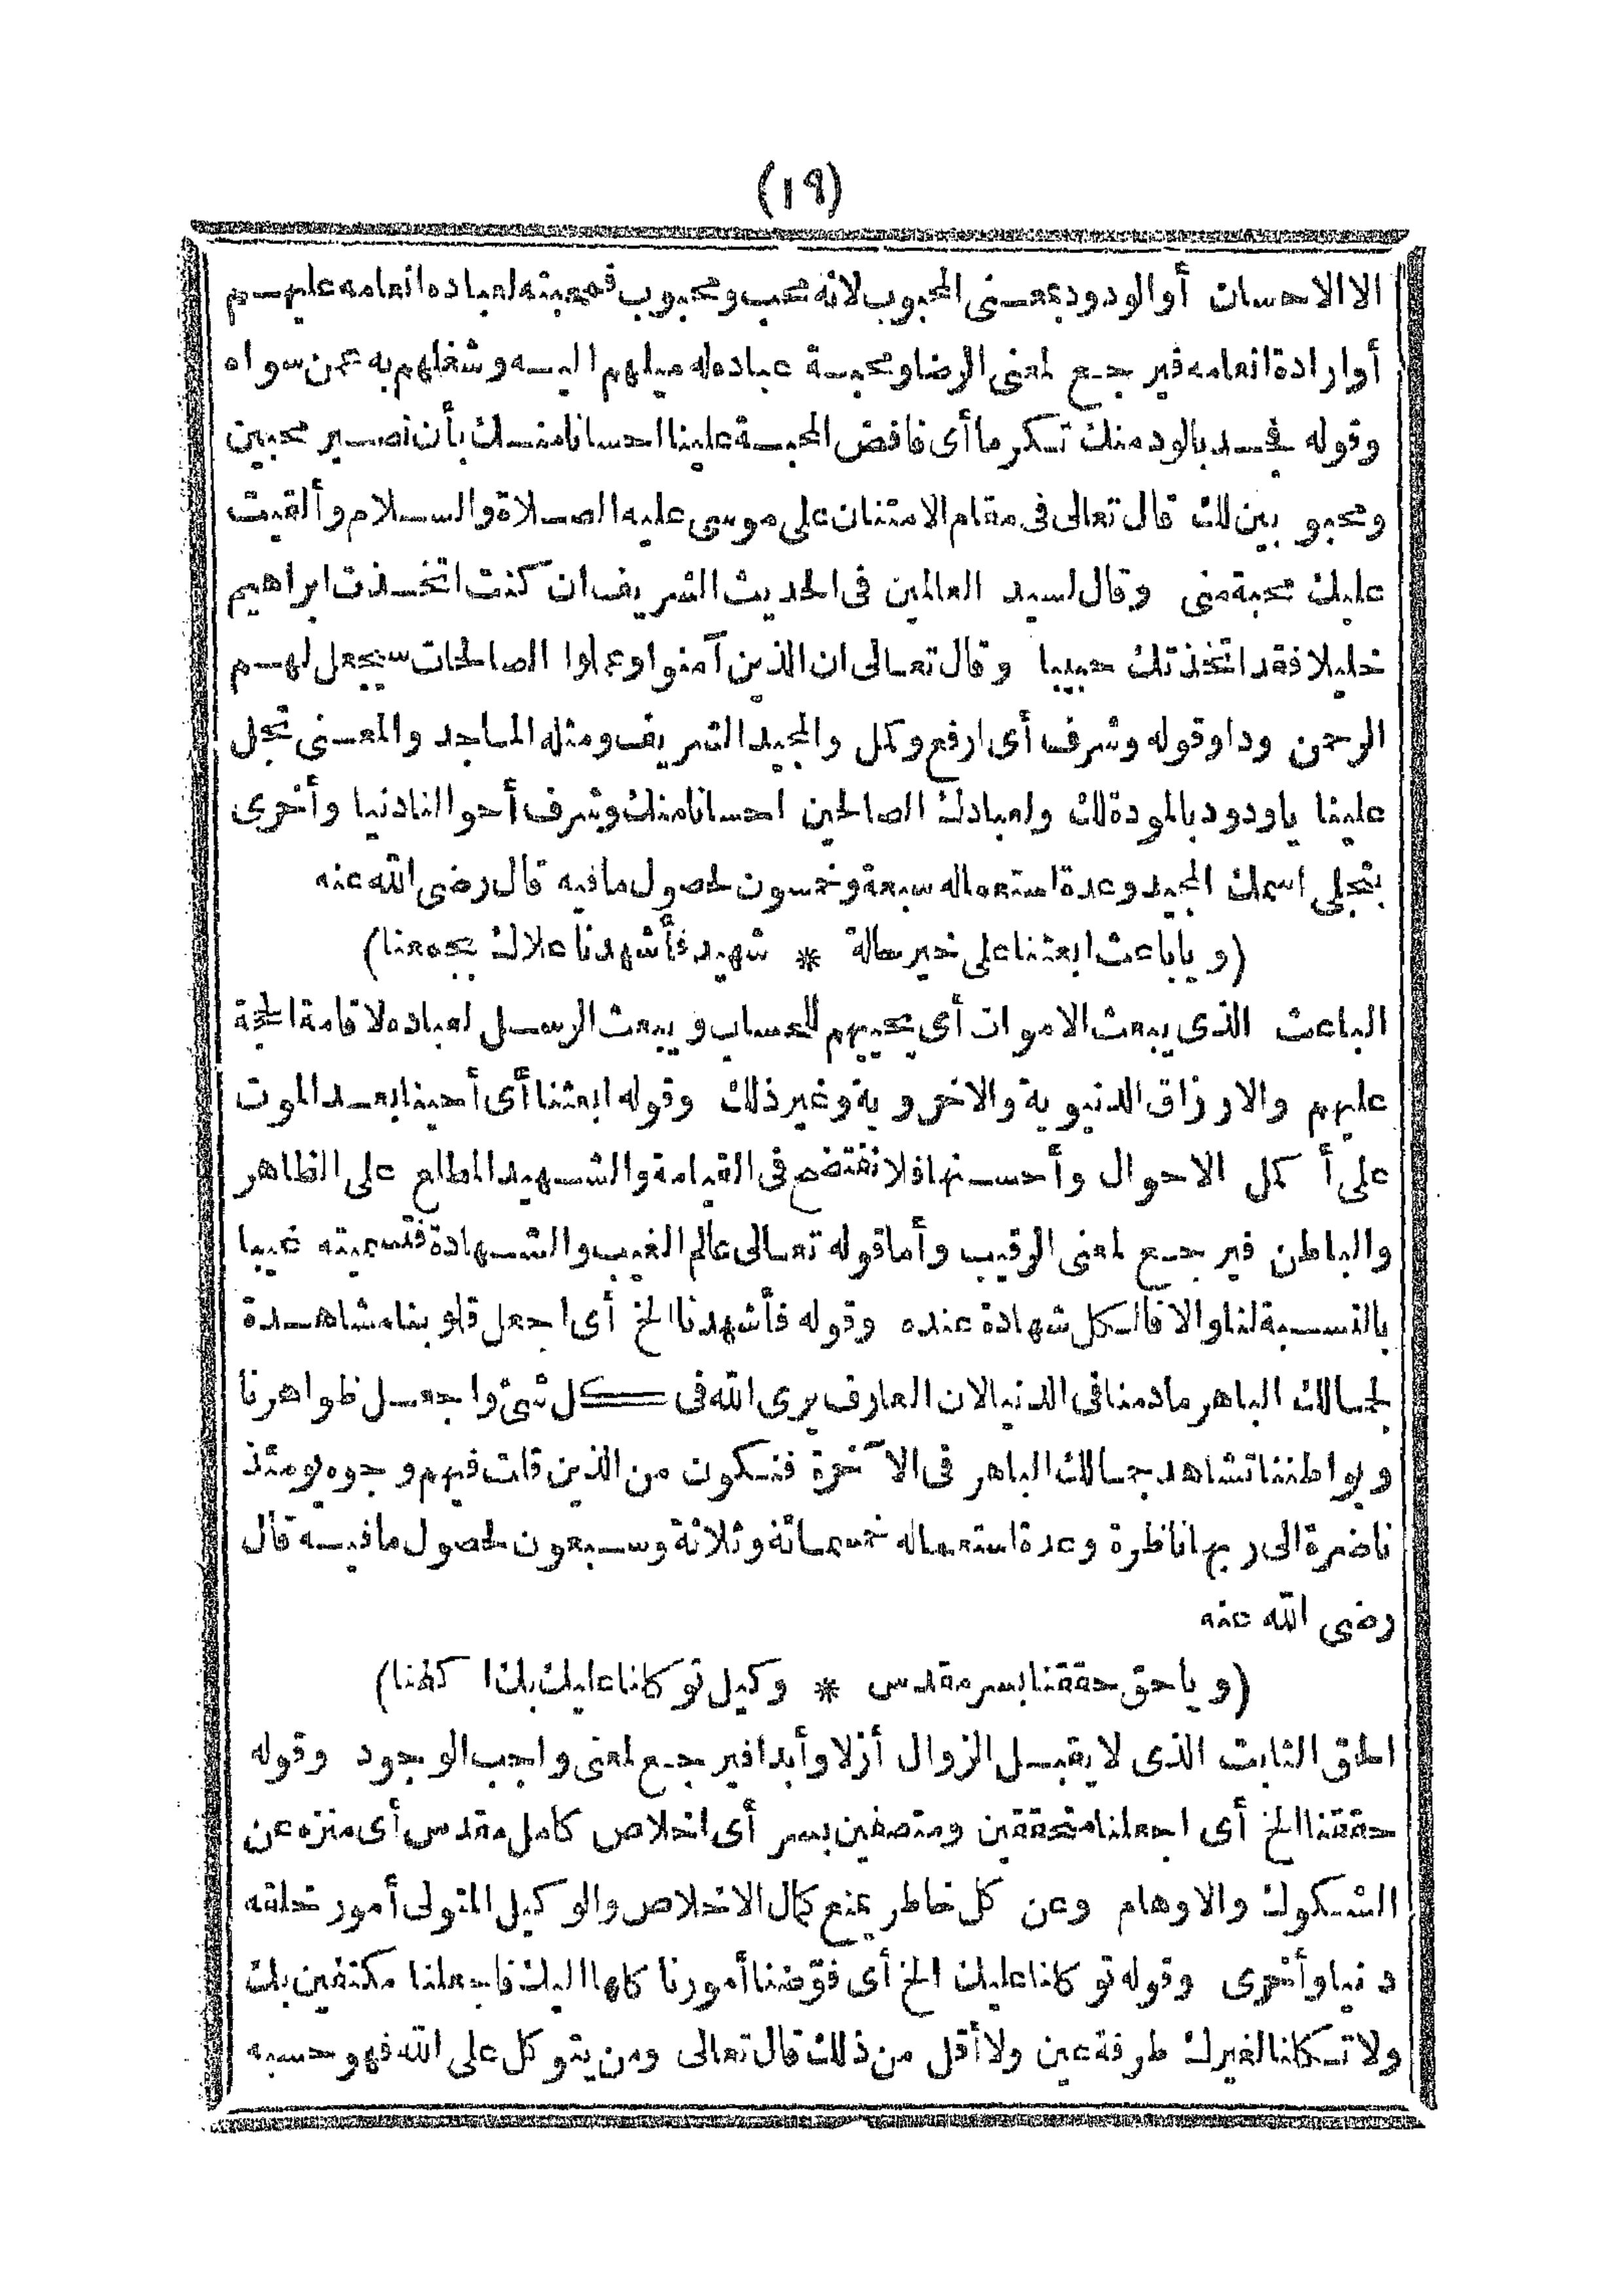 (١٩)
الا الاحسان أو الودود بمعنى المحبوب لانه محب ومحبوب فمحبته لعباده انعامه عليهم
أو ارادة انعامه فيرجع لمعنى الرضا ومحبة عباده له ميلهم اليه وشغلهم به عمن سواه
وقوله فجد بالود منك تكرما أى فافض المحبة علينا احسانا منك بأن نصير محبين
ومحبوبين لك قال تعالى فى مقام الامتنان على موسى عليه الصلاة والسلام وألقيت
عليك محبة منى وقال لسيد العالمين فى الحديث الشريف ان كنت اتخذت ابراهيم
خليلا فقد اتخذتك حبيبا وقال تعالى ان الذين آمنوا وعملوا الصالحات سيجعل لهم
الرحمن ودا وقوله وشرف أى ارفع وكمل والمجيد الشريف ومثله الماجد والمعنى تجل
علينا ياودود بالمودة لك ولعبادك الصالحين احسانا منك وشرف أحوالنا دنيا وأخرى
بتجلى اسمك المجيد وعدة استعماله سبعة وخمسون لحصول مافيه قال رضى الله عنه
(وياباعث ابعثنا على خير حالة * شهيد فأشهدنا علاك بجمعنا)
الباعث الذى يبعث الاموات أى يحييهم للحساب ويبعث الرسل لعباده لاقامة الحجة
عليهم والارزاق الدنيوية والاخروية وغير ذلك وقوله ابعثنا أى أحينا بعد الموت
على أكمل الاحوال وأحسنها فلا نفتضح فى القيامة والشهيد المطلع على الظاهر
والباطن فيرجع لمعنى الرقيب وأما قوله تعالى عالم الغيب والشهادة فتسميته غيبا
بالنسبة لنا والا فالكل شهادة عنده وقوله فأشهدنا الخ أى اجعل قلوبنا مشاهدة
لجمالك الباهر مادمنا فى الدنيا لان العارف يرى الله فى كل شئ واجعل ظواهرنا
وبواطننا تشاهد جمالك الباهر فى الآخرة فنكون من الذين قلت فيهم وجوه يومئذ
ناضرة الى ربها ناظرة وعدة استعماله خمسمائة وثلاثة وسبعون لحصول مافيه قال
رضى الله عنه
(وياحق حققنا بسر مقدس * وكيل توكلنا عليك بك اكفنا)
الحق الثابت الذى لايقبل الزوال أزلا وأبدا فيرجع لمعنى واجب الوجود وقوله
حققنا الخ أى اجعلنا متحققين ومتصفين بسر أى اخلاص كامل مقدس أى منزه عن
الشكوك والاوهام وعن كل خاطر يمنع كمال الاخلاص والوكيل المتولى أمور خلقه
دنيا وأخرى وقوله توكلنا عليك الخ أى فوّضنا أمورنا كلها اليك فاجعلنا مكتفين بك
ولا تكلنا لغيرك طرفة عين ولا أقل من ذلك قال تعالى ومن يتوكل على الله فهو حسبه